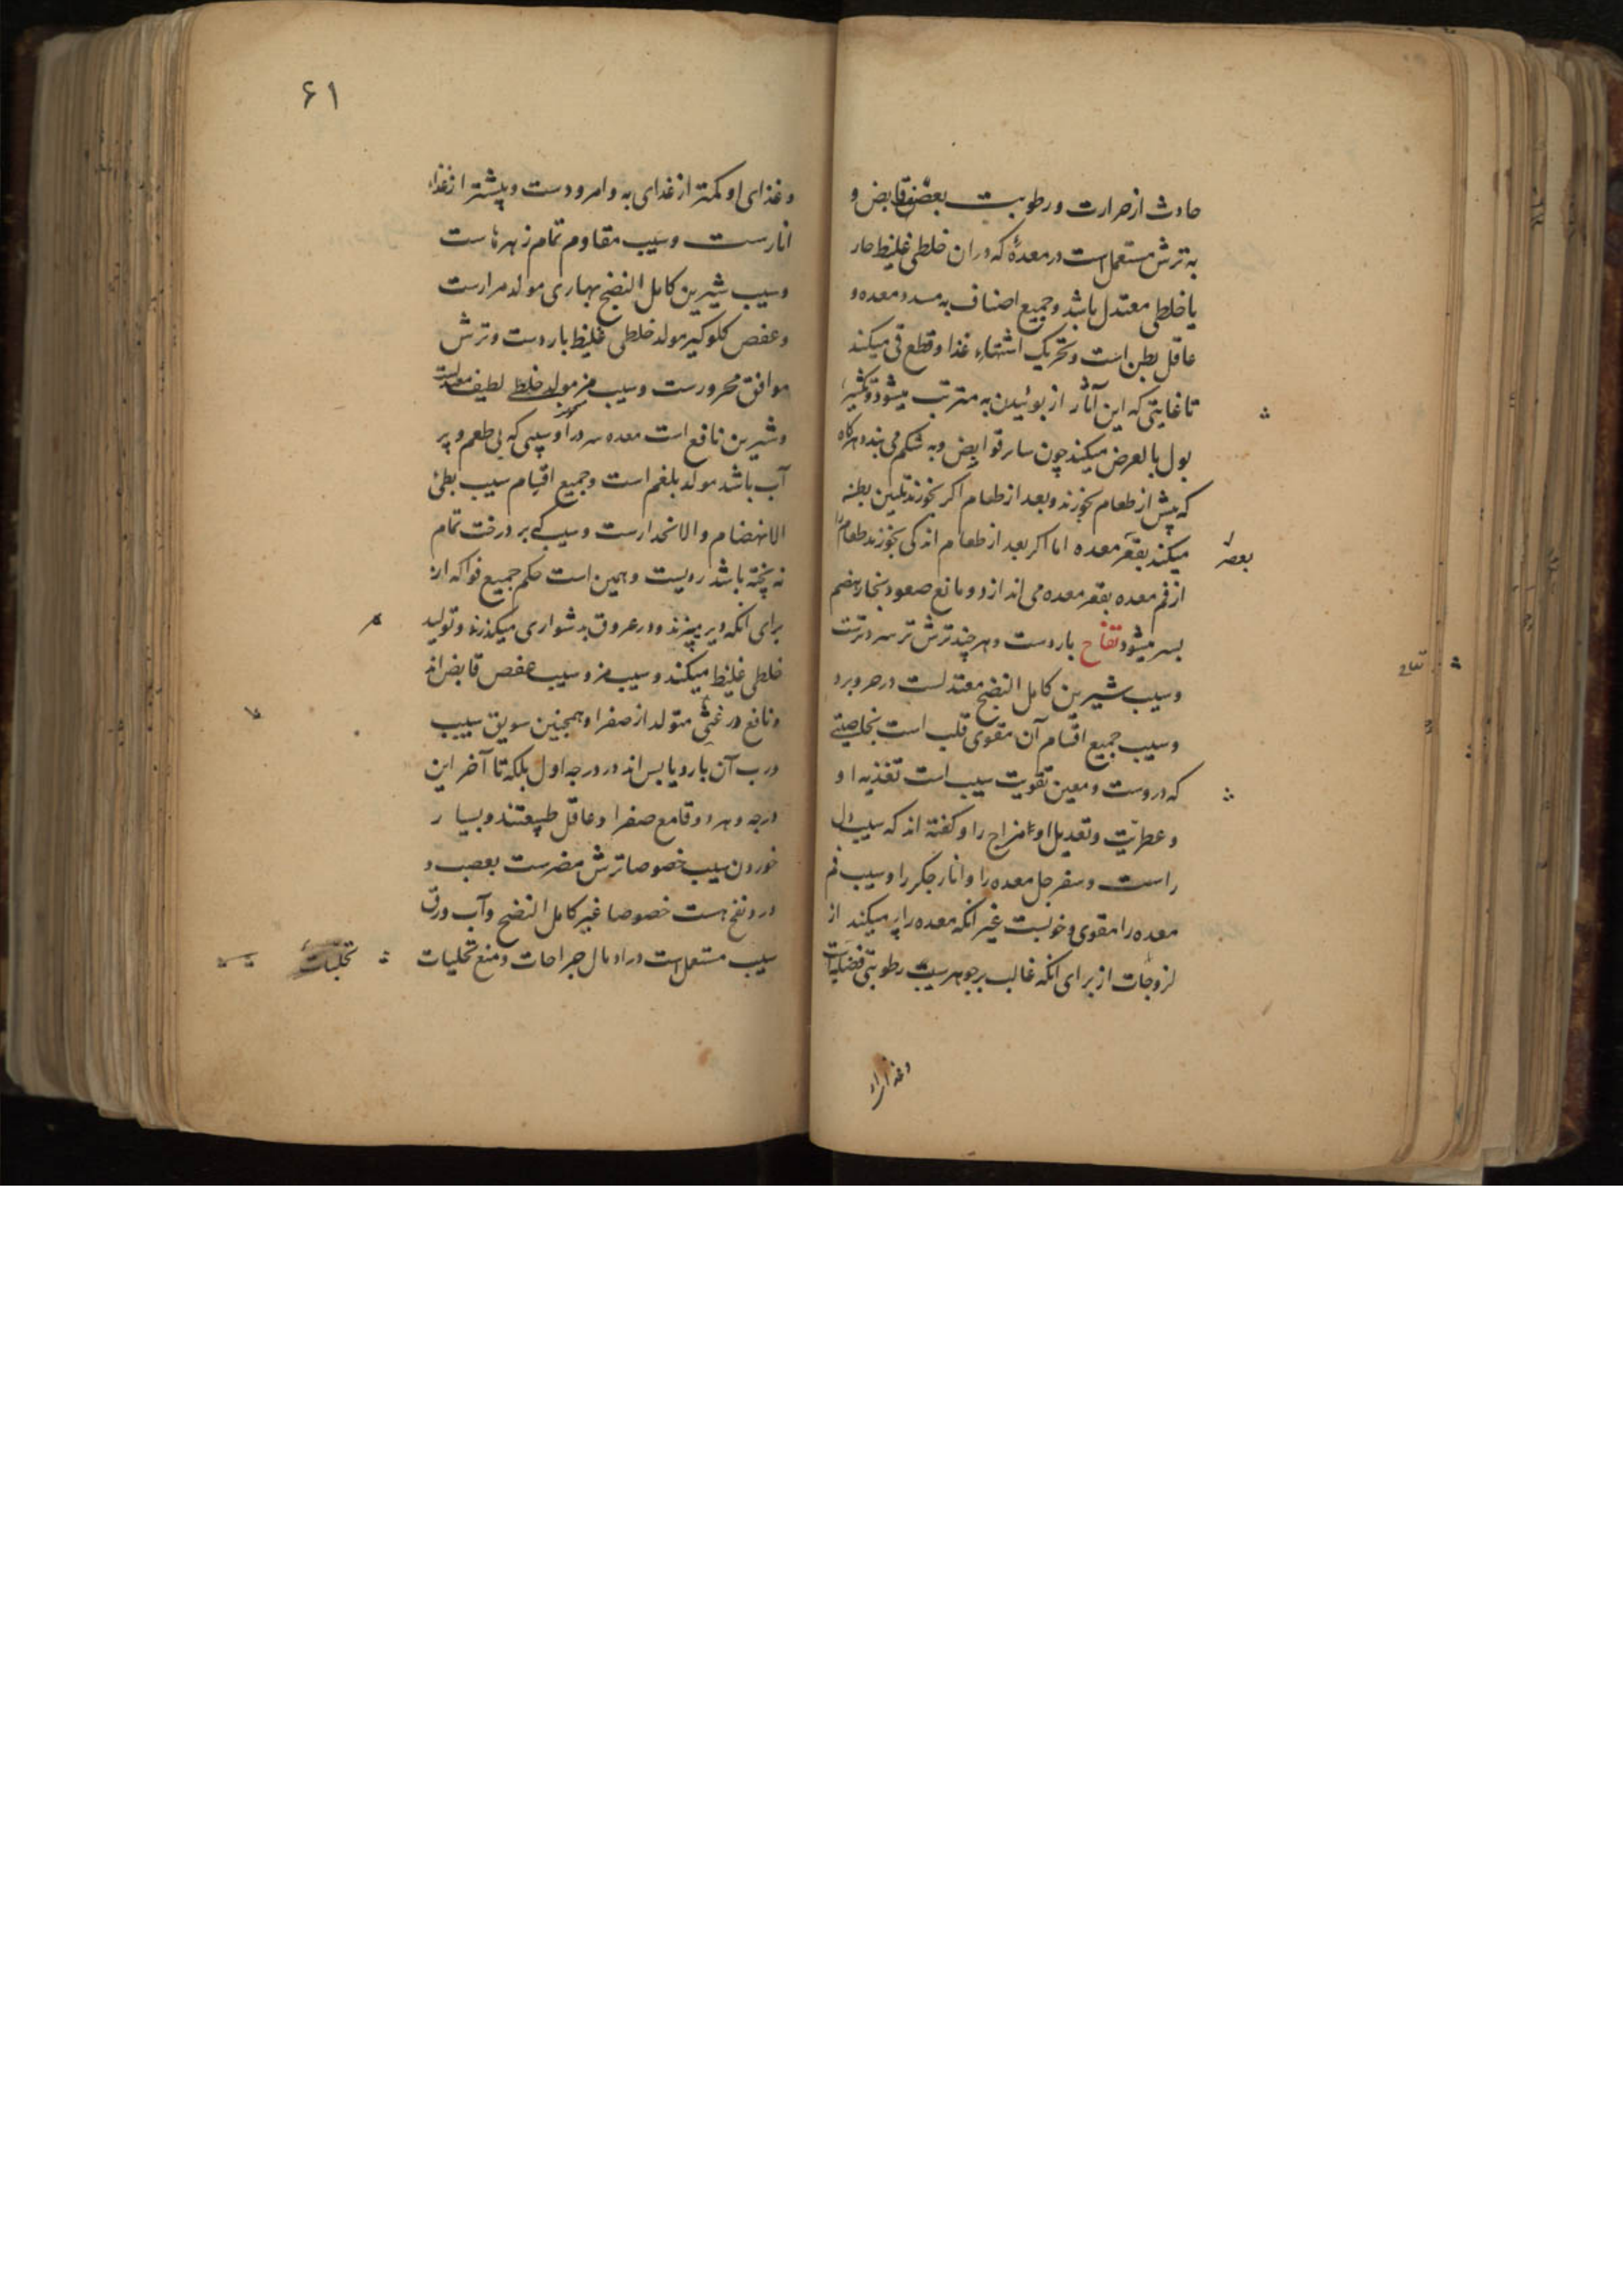 حادث از حرارت و رطوبت بعضی قابض و
به ترش مستعمل است در معدۀ که در ان خلطی غلیظ حار
یا خلطی معتدل باشد و جمیع اصناف به مسدد معده و
عاقل بطن است و تحریک اشتهاء غذا و قطع قی میکند
تا غایتی که این آثار از بوئیدن به مترتب میشود و تکثیر
بول بالعرض میکند چون سایر قوابض و به شکم می بندد هرگاه
که پیش از طعام بخورند و بعد از طعام اکر بخورند تلیین بطنه
میکند بقعر معده اما اکر بعد از طعام اندکی بخورند طعام را
بعصر
از فم معده بقعر معده می اندازد و مانع صعود بخار هضم
بسر میشود تفاح باردست و هر چند ترش تر سردترست
تفاح
و سیب شیرین کامل النضج معتدلست در حر و برد
و سیب جمیع اقسام آن مقوی قلب است بخاصیتی
که دروست و معین تقویت سیب است تغذیه او
و عطریّت و تعدیل او امزاج را و کفته اند که سیب دل
راست و سفرجل معده را و انار جکر را و سیب فم
معده را مقوی و خوبست غیر انکه معده را پر میکند از
لزوجات از برای انکه غالب بر جوهر سیب رطوبتی فضلیه است
۶۱
و غذای او کمتر از غذای به و امرودست و پیشتر از غذاء
انارست و سیب مقاوم تمام زهرهاست
و سیب شیرین کامل النضج بهاری مولد مرارست
و عفص کلوکیر مولد خلطی غلیظ باردست و ترش
موافق محرورست و سیب مز مولد خلطی لطیف
و شیرین نافع است معده سرد را و سیبی که بی طعم و پر
آب باشد مولد بلغم است و جمیع اقسام سیب بطئ
الانهضام و الانحدارست و سیب که بر درخت تمام
نه پخته باشد ردیست و همین است حکم جمیع فواکه از
برای انکه دیر میپزند و در عروق بدشواری میکذرند و تولید
خلطی غلیظ میکند و سیب مز و سیب عفص قابض اند
و نافع در غثی متولد از صفرا و همچنین سویق سیب
و رب آن بارد یابس اند در درجه اول بلکه تا آخر این
درجه و هر دو قامع صفرا و عاقل طبیعتند و بسیار
خوردن سیب خصوصا ترش مضرست بعصب و
در و نفخ هست خصوصا غیر کامل النضج و آب ورق
سیب مستعمل است در ادمال جراحات و منع تحلیات
تحلبّات